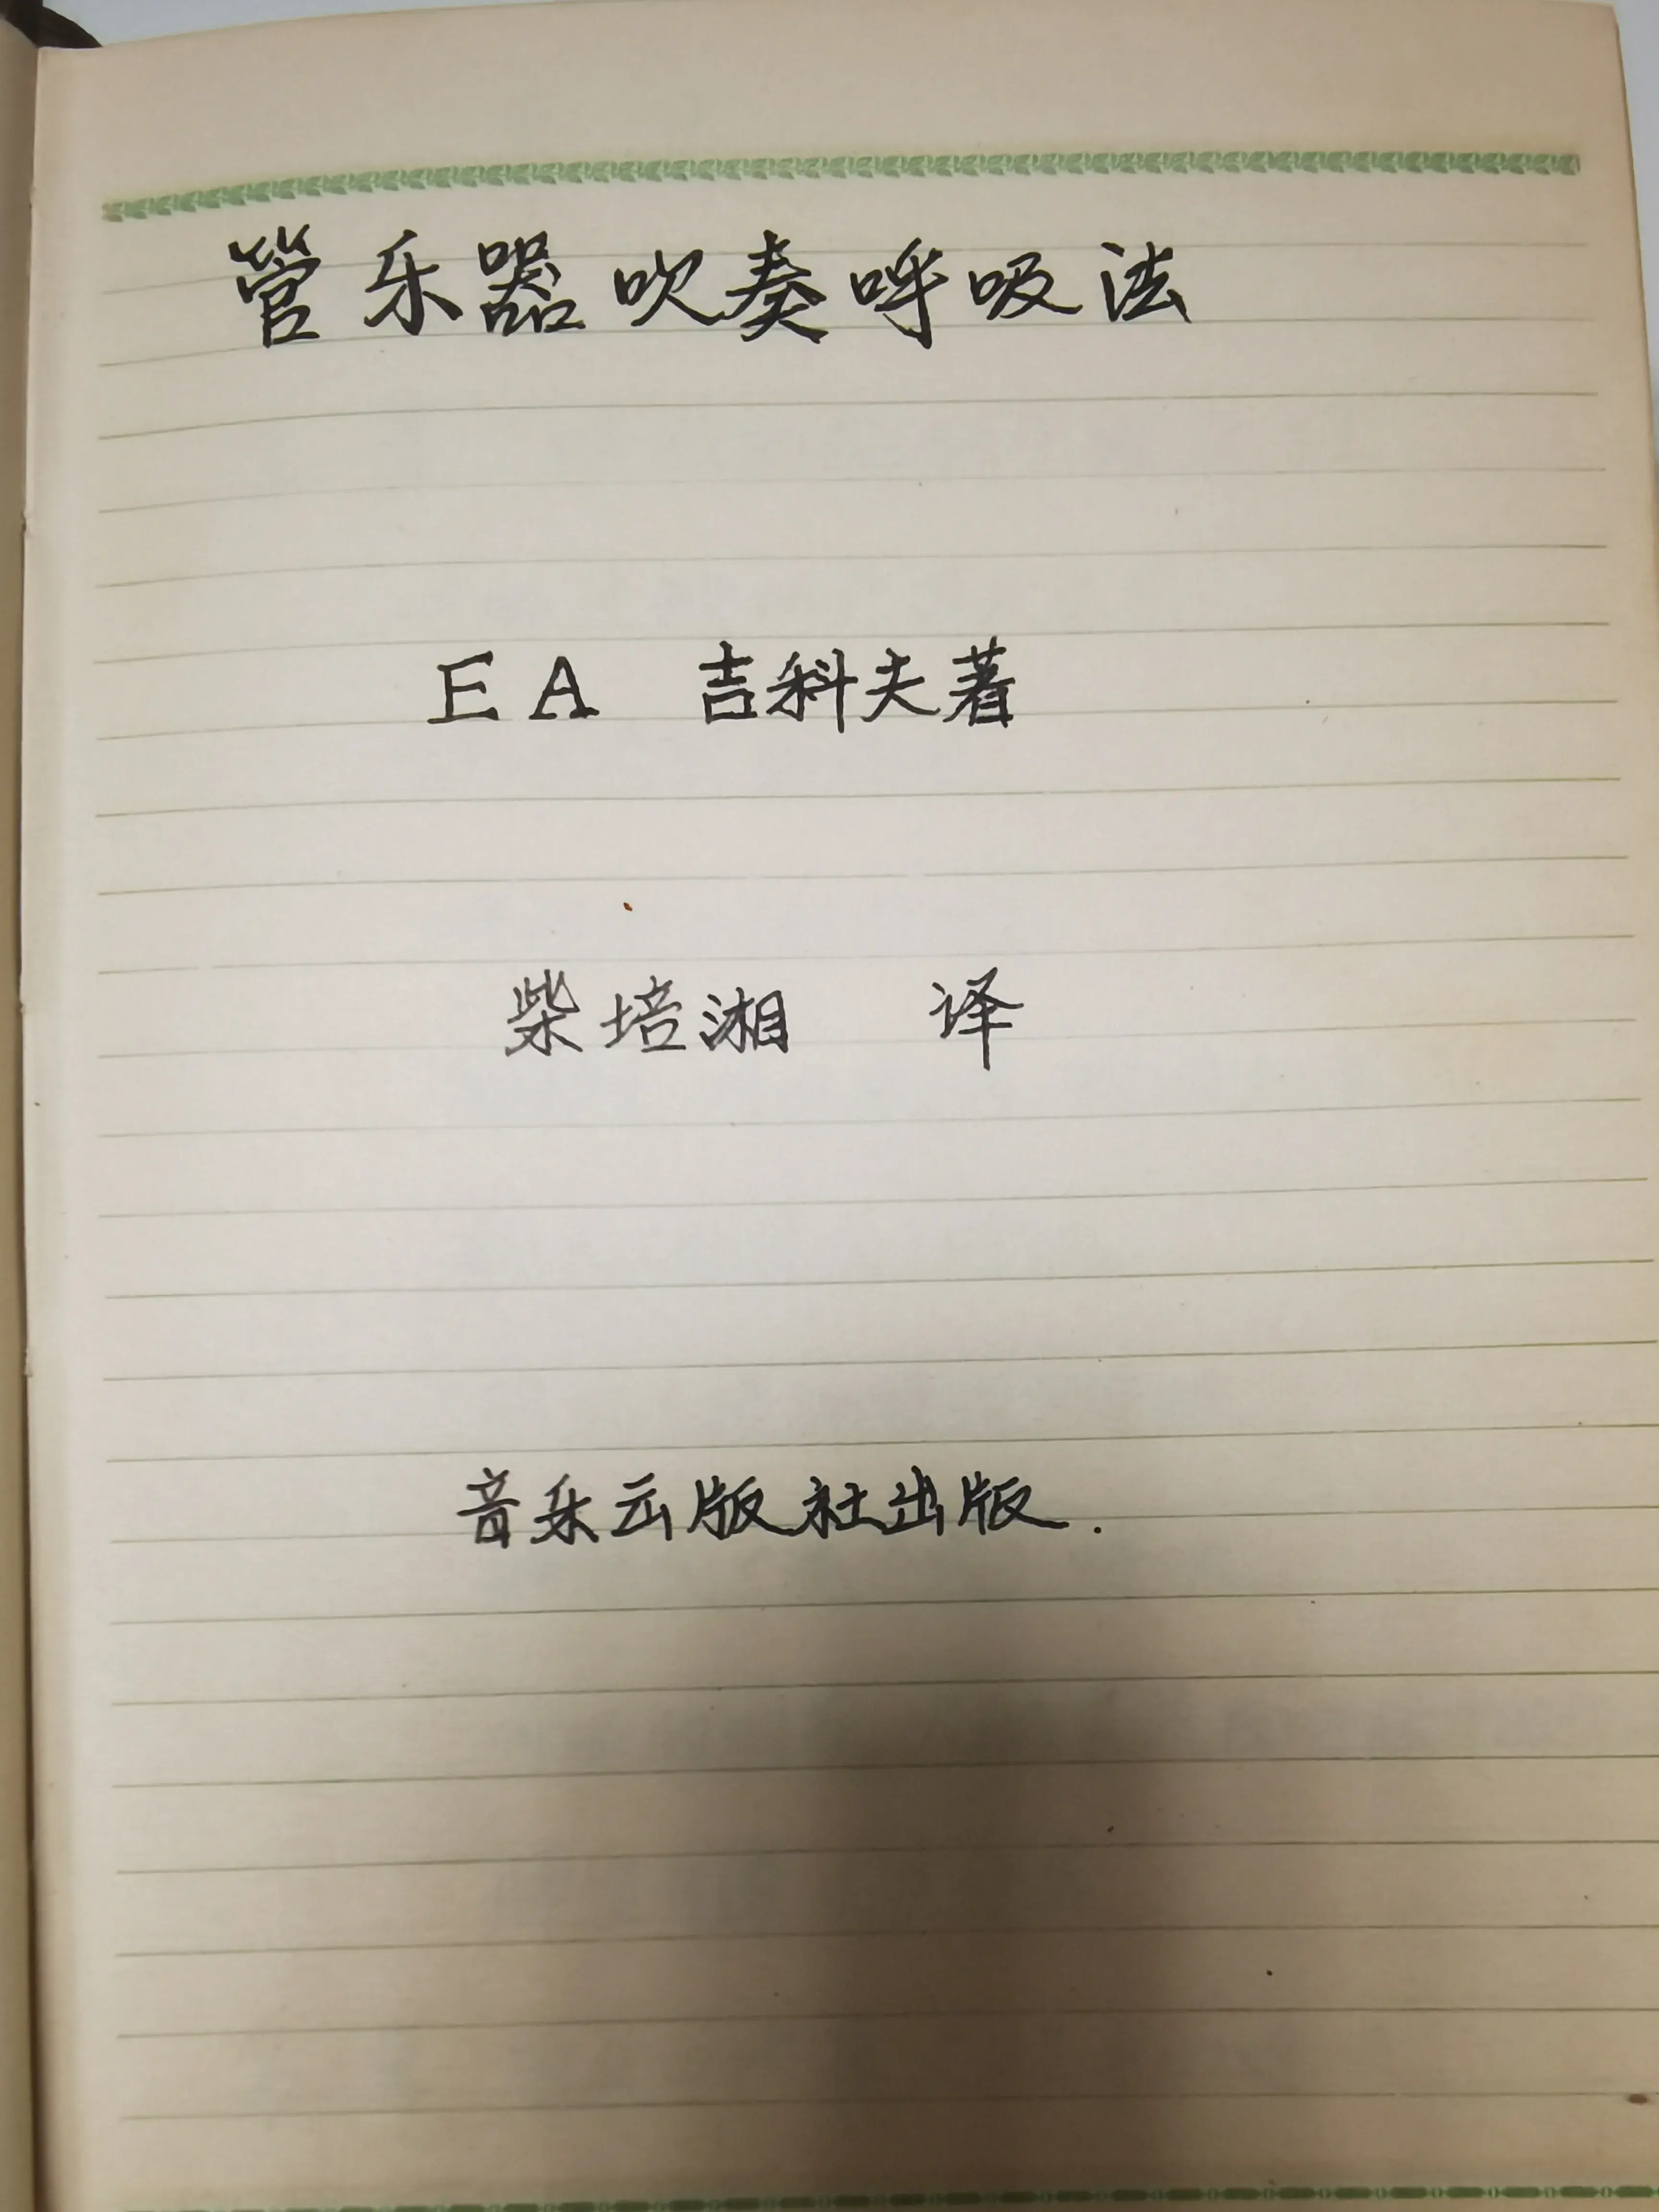 管乐器吹奏呼吸法
EA 吉科夫著
柴培湘 译
音乐出版社出版.